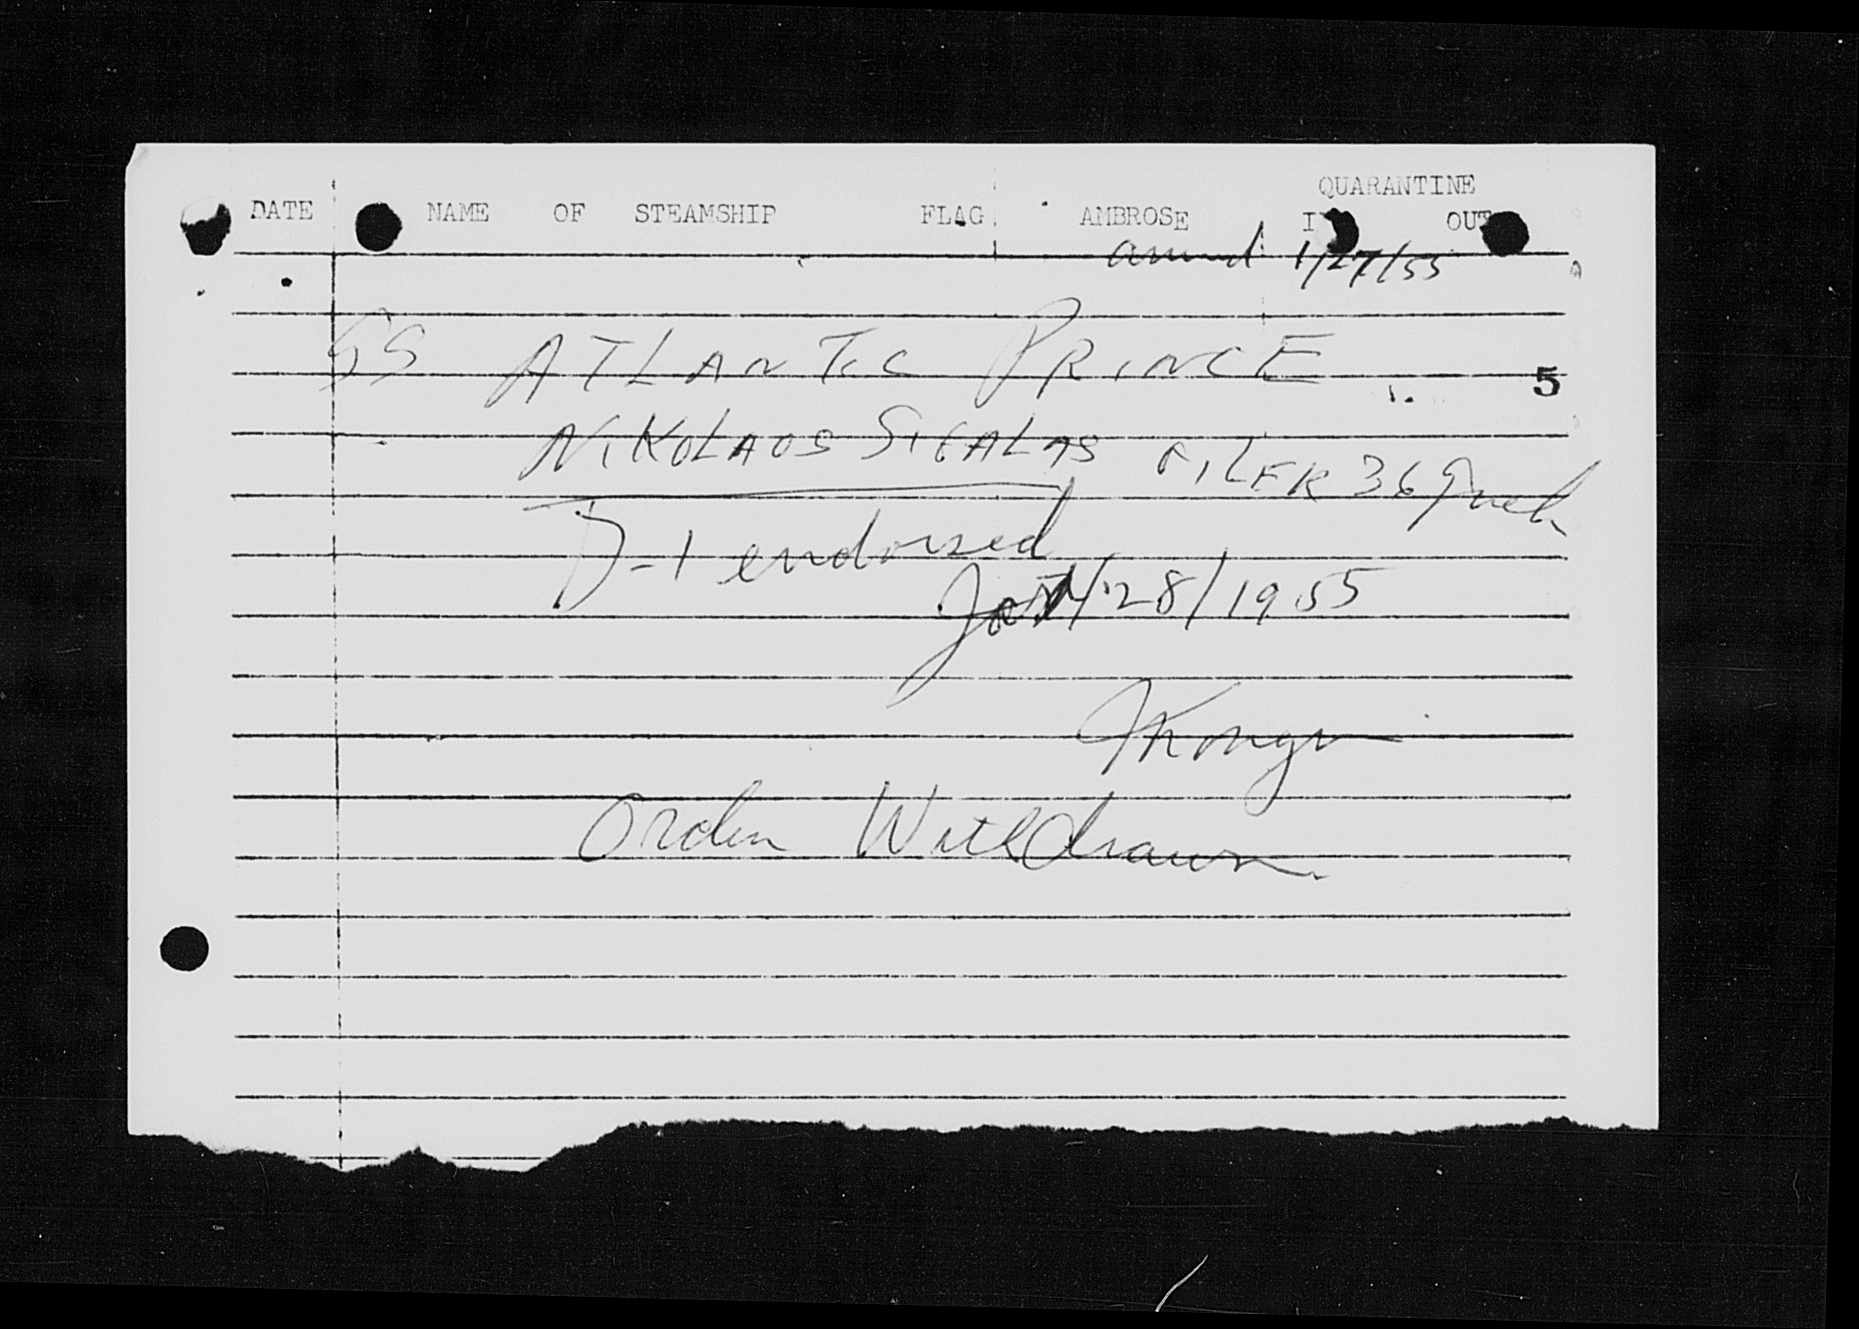 QUARANTINE
DATE NAME OF STEAMSHIP FLAG AMBROSE OUT
arrived 1/27/55
SS ATLANTIC PRINCE
5
NIKOLAOS SIGALAS 36 Greek
D-1 endorsed
Jan/28/1955
Order Withdrawn